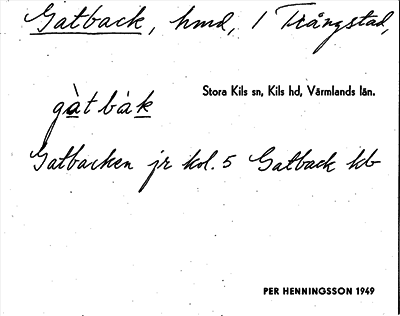 Gatback, hmd, 1 Trångstad,
Stora Kils sn, Kils hd, Värmlands län.
gàt bàk
Gatbacken jr kol. 5 Gatback kb
PER HENNINGSSON 1949